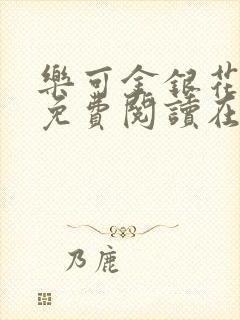 樂可金銀花
免費閱讀在
乃鹿